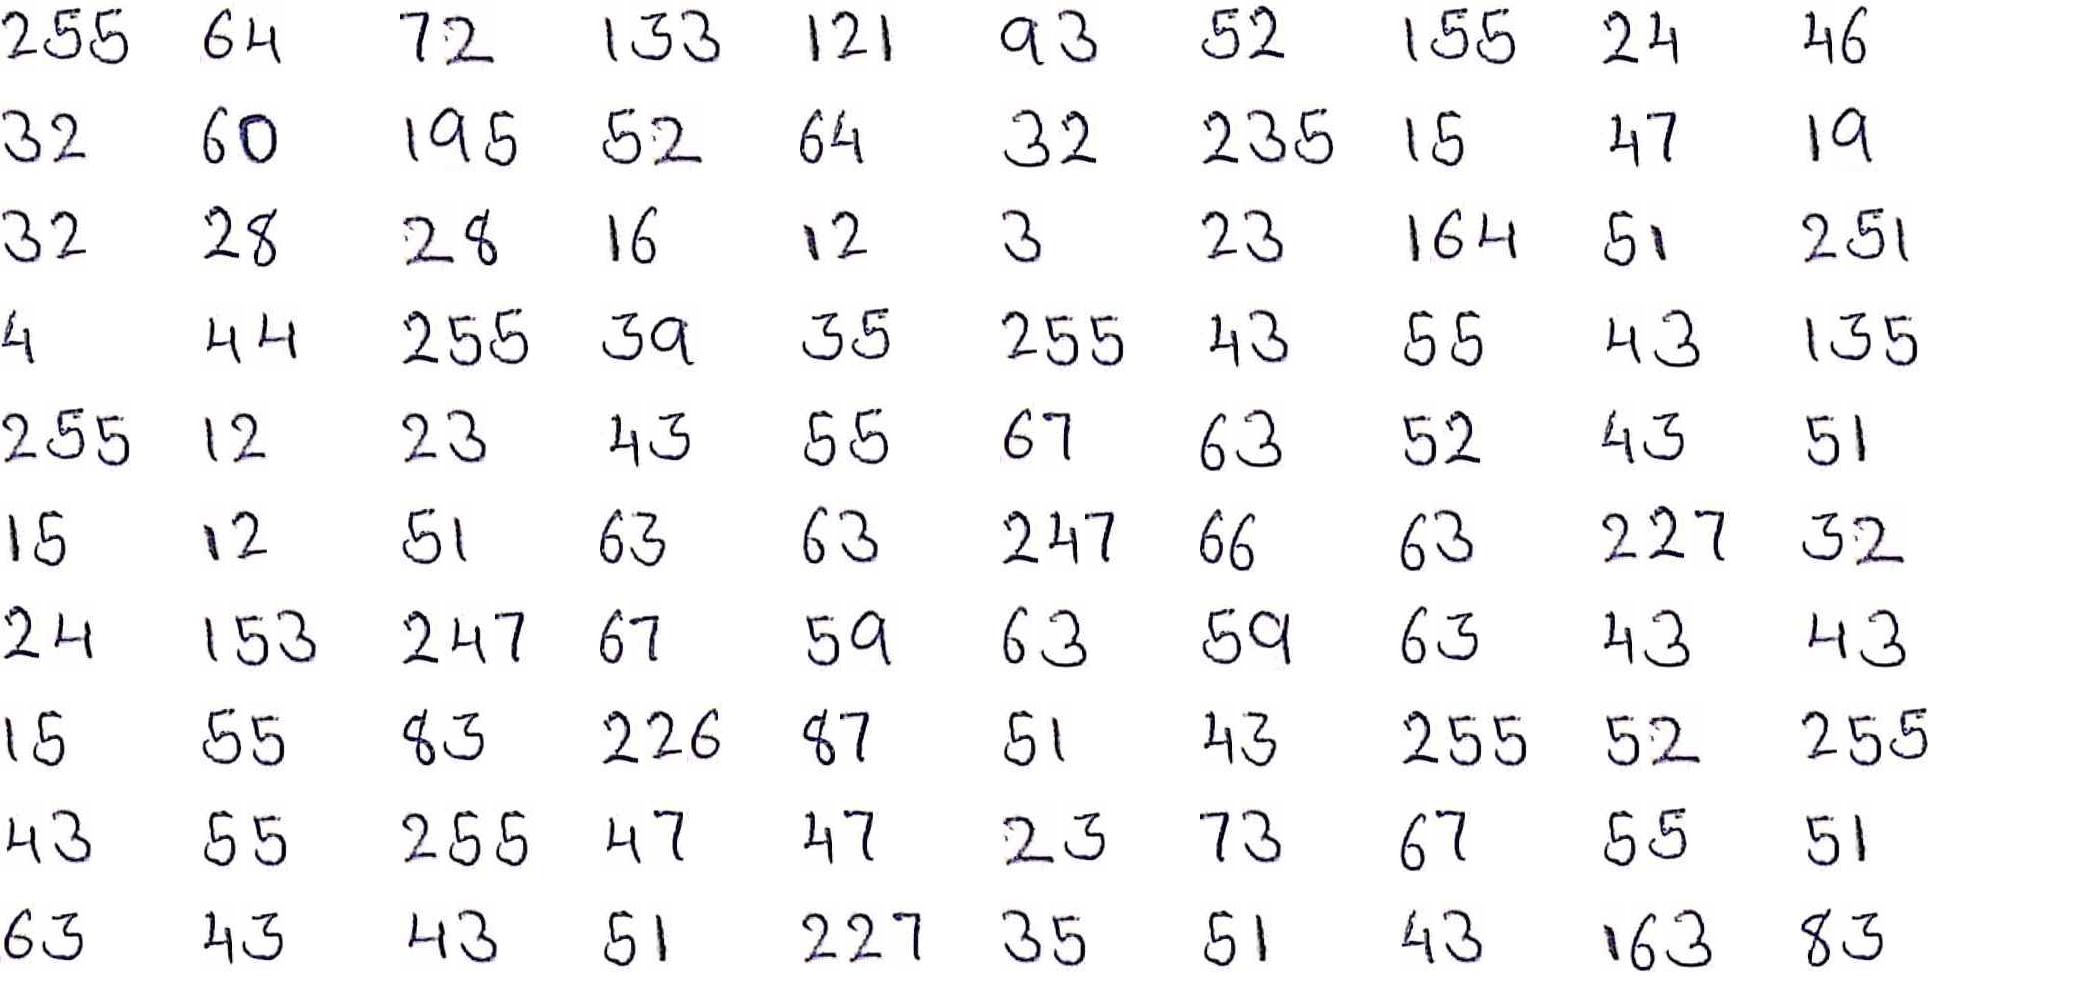 255 64 72 133 121 93 52 155 24 46
32 60 195 52 64 32 235 15 47 19
32 28 28 16 12 3 23 164 51 251
4 44 255 39 35 255 43 55 43 135
255 12 23 43 55 67 63 52 43 51
15 12 51 63 63 247 66 63 227 32
24 153 247 67 59 63 59 63 43 43
15 55 83 226 87 51 43 255 52 255
43 55 255 47 47 23 73 67 55 51
63 43 43 51 227 35 51 43 163 83